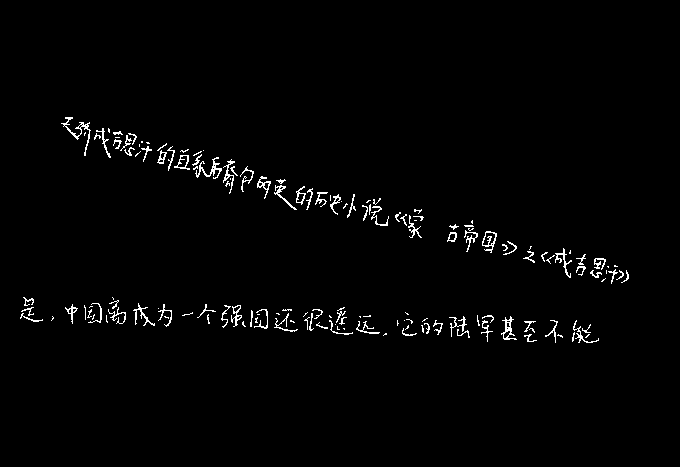 天骄成吉思汗的直系后裔包丽英的历史小说《蒙古帝国》之《成吉思汗》
是，中国离成为一个强国还很遥远，它的陆军甚至不能